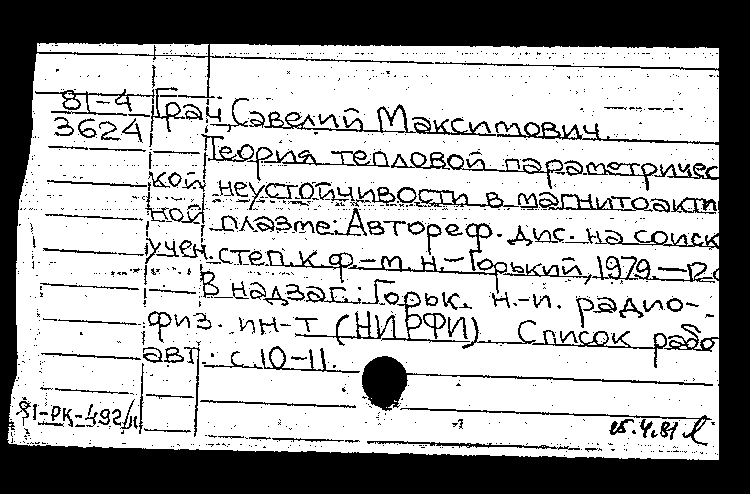 81-4
3624
Грач, Савелий Максимович.
Теория тепловой параметричес
кой неустойчивости в магнитоакти
ной плазме: Автореф. дис. на соиск
учен. степ. к. ф.-м. н. – Горький, 1979. – 12 с
В надзаг.: Горьк. н.-и. радио-
физ. ин-т (НИРФИ). Список рабо
авт.: с. 10-11.
81-РК-492/м
15.4.81